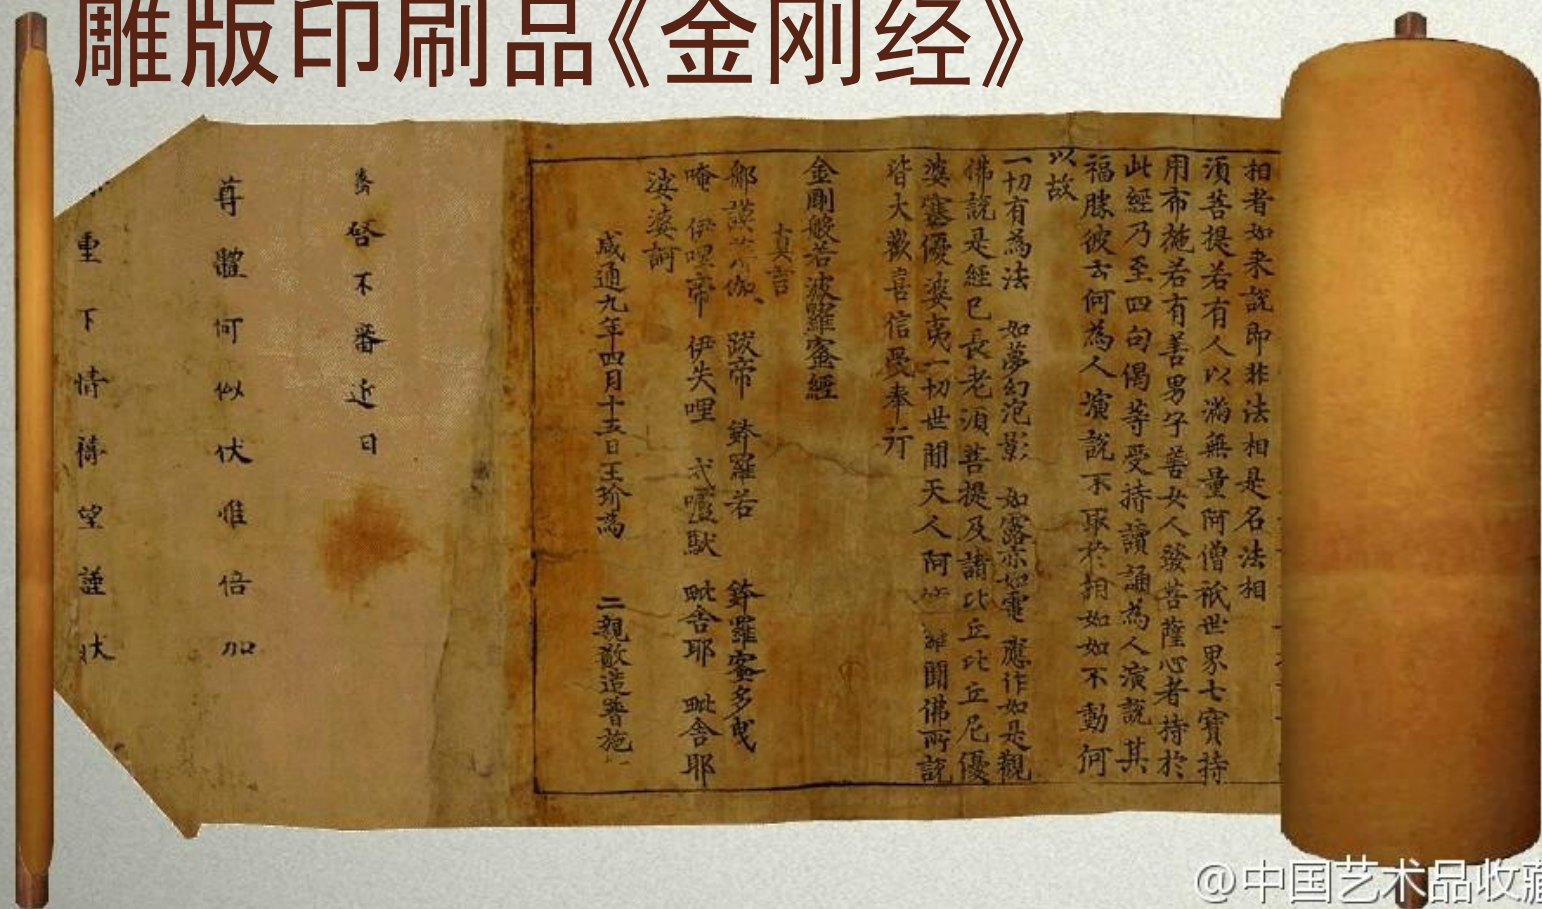 雕版印刷品《金刚经》
相者如来說即非法相是名法相
湏菩提若有人以滿無量阿僧祇世界七寶持
用布施若有善男子善女人發菩薩心者持於
此經乃至四句偈等受持讀誦為人演說其
福勝彼云何為人演說不取於相如如不動何
以故
一切有為法 如夢幻泡影 如露亦如電 應作如是觀
佛說是經已長老湏菩提及諸比丘比丘尼優
婆塞優婆夷一切世間天人阿脩羅聞佛所說
皆大歡喜信受奉行
金剛般若波羅蜜經
真言
那謨 伽 跋帝 鉢羅若 鉢羅蜜多曵
唵 伊哩帝 伊失哩 戍嚧馱 毗舍耶 毗舍耶
娑婆訶
咸通九年四月十五日王玠為 二親敬造普施
啓不審近日
尊體何似伏惟倍加
重下情禱望謹狀
@中国艺术品收藏